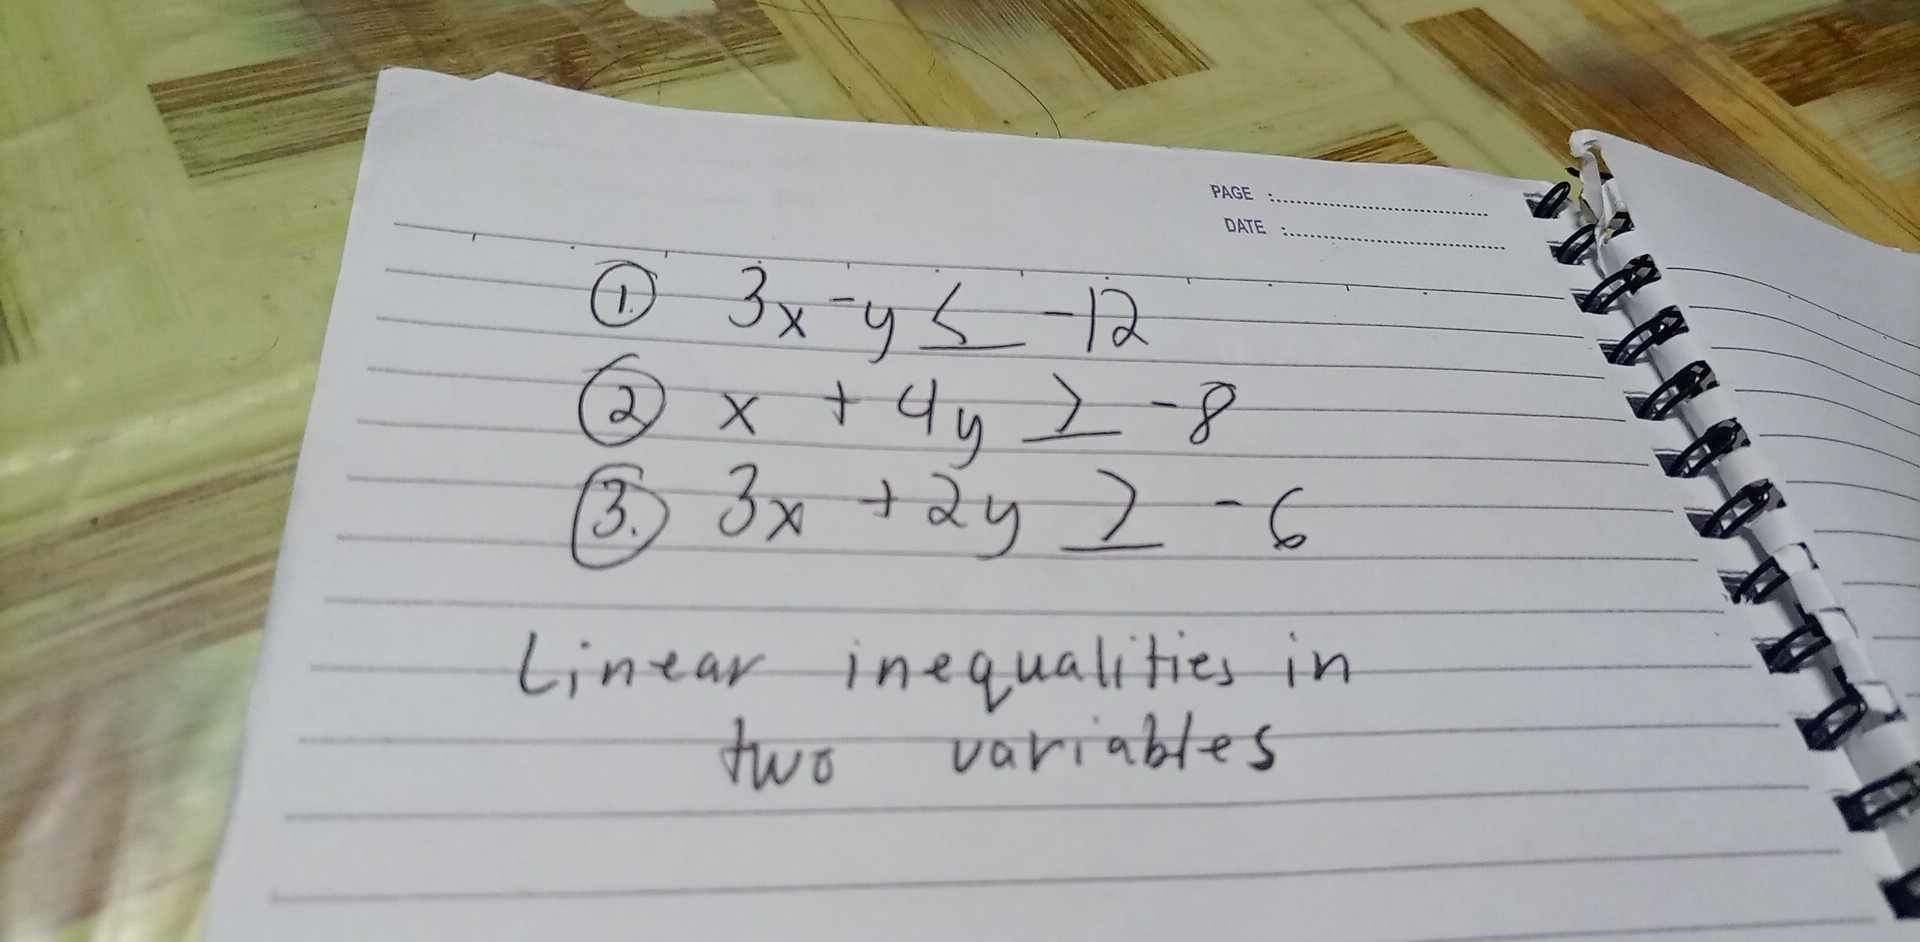 PAGE :
DATE :
①. 3x - y ≤ -12
② x + 4y ≥ -8
③. 3x + 2y ≥ -6
Linear inequalities in
two variables